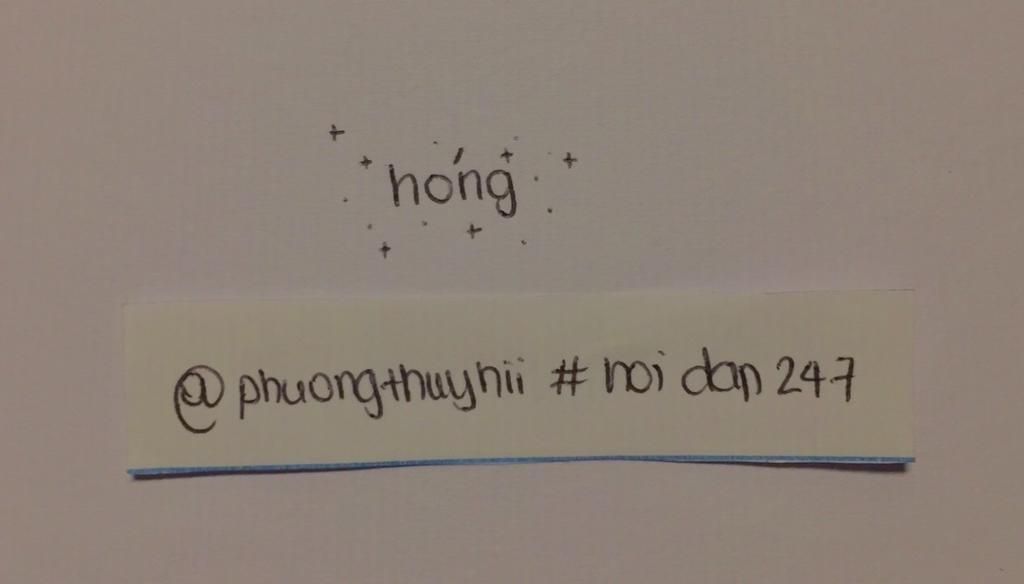 hóng
@phuongthuynii # noi dan 247